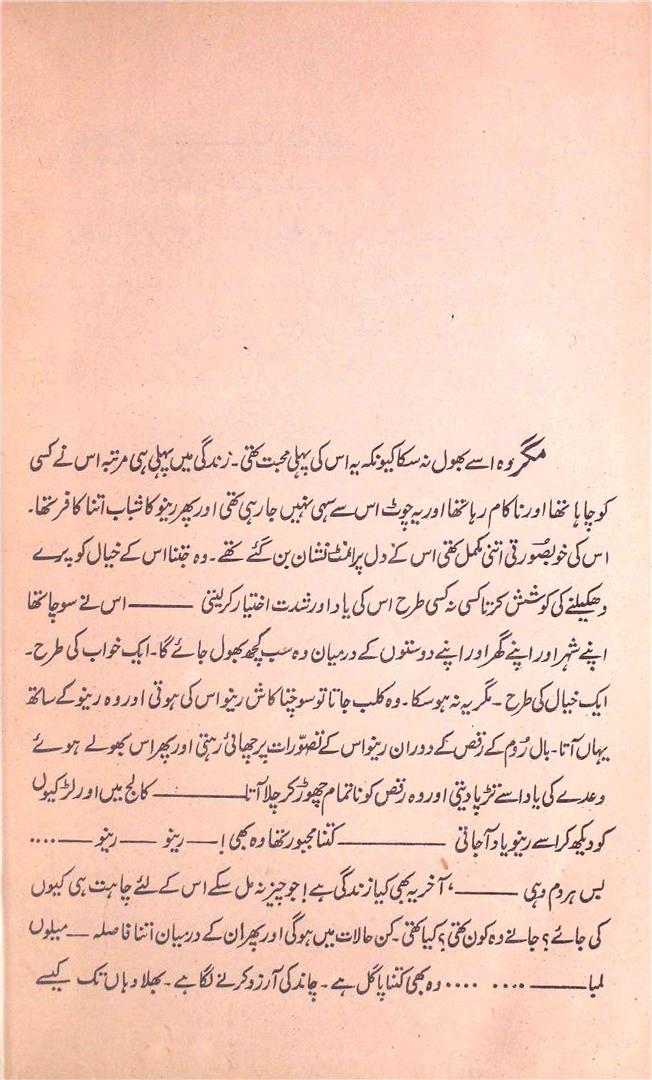 مگر وہ اسے بھول نہ سکا کیونکہ یہ اس کی پہلی محبت تھی۔ زندگی میں پہلی ہی مرتبہ اس نے کسی
کو چاہا تھا اور ناکام رہا تھا اور یہ چوٹ اس سے سہی نہیں جا رہی تھی اور پھر رینو کا شباب اتنا کافر تھا۔
اس کی خوبصورتی اتنی مکمل تھی اس کے دل پر انمٹ نشان بن گئے تھے۔ وہ جتنا اس کے خیال کو پرے
دھکیلنے کی کوشش کرتا کسی نہ کسی طرح اس کی یاد اور شدت اختیار کر لیتی ——— اس نے سوچا تھا
اپنے شہر اور اپنے گھر اور اپنے دوستوں کے درمیان وہ سب کچھ بھول جائے گا۔ ایک خواب کی طرح۔
ایک خیال کی طرح۔ مگر یہ نہ ہو سکا۔ وہ کلب جاتا تو سوچتا کاش رینو اس کی ہوتی اور وہ رینو کے ساتھ
یہاں آتا۔ بال رُوم کے رقص کے دوران رینو اس کے تصوّرات پر چھائی رہتی اور پھر اس بھولے ہوئے
وعدے کی یاد اسے تڑپا دیتی اور وہ رقص کو ناتمام چھوڑ کر چلا آتا ——— کالج میں اور لڑکیوں
کو دیکھ کر اسے رینو یاد آ جاتی ——— کتنا مجبور تھا وہ بھی! — رینو — رینو — ....
بس ہر دم وہی ———، آخر یہ بھی کیا زندگی ہے! جو چیز نہ مل سکے اس کے لئے چاہت ہی کیوں
کی جائے؟ جانے وہ کون تھی؟ کیا تھی۔ کن حالات میں ہوگی اور پھر ان کے درمیان اتنا فاصلہ — میلوں
لمبا ——— .... .... وہ بھی کتنا پاگل ہے۔ چاند کی آرزو کرنے لگا ہے۔ بھلا وہاں تک کیسے